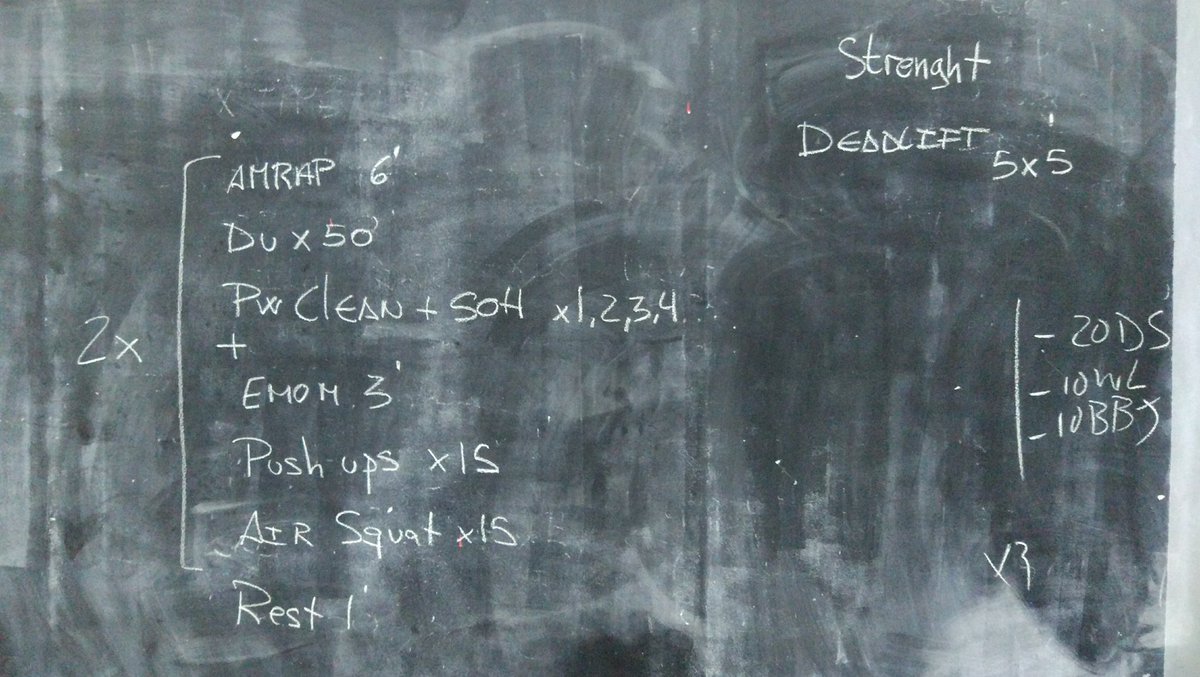 AMRAP 6'
DU x 50
PW CLEAN + SOH x1,2,3,4...
+
EMOM 3'
Push ups x15
AIR Squat x15
Rest 1'
2x
Strenght
DEADLIFT 5x5
- 20DS
- 10
- 10BBJ
x3